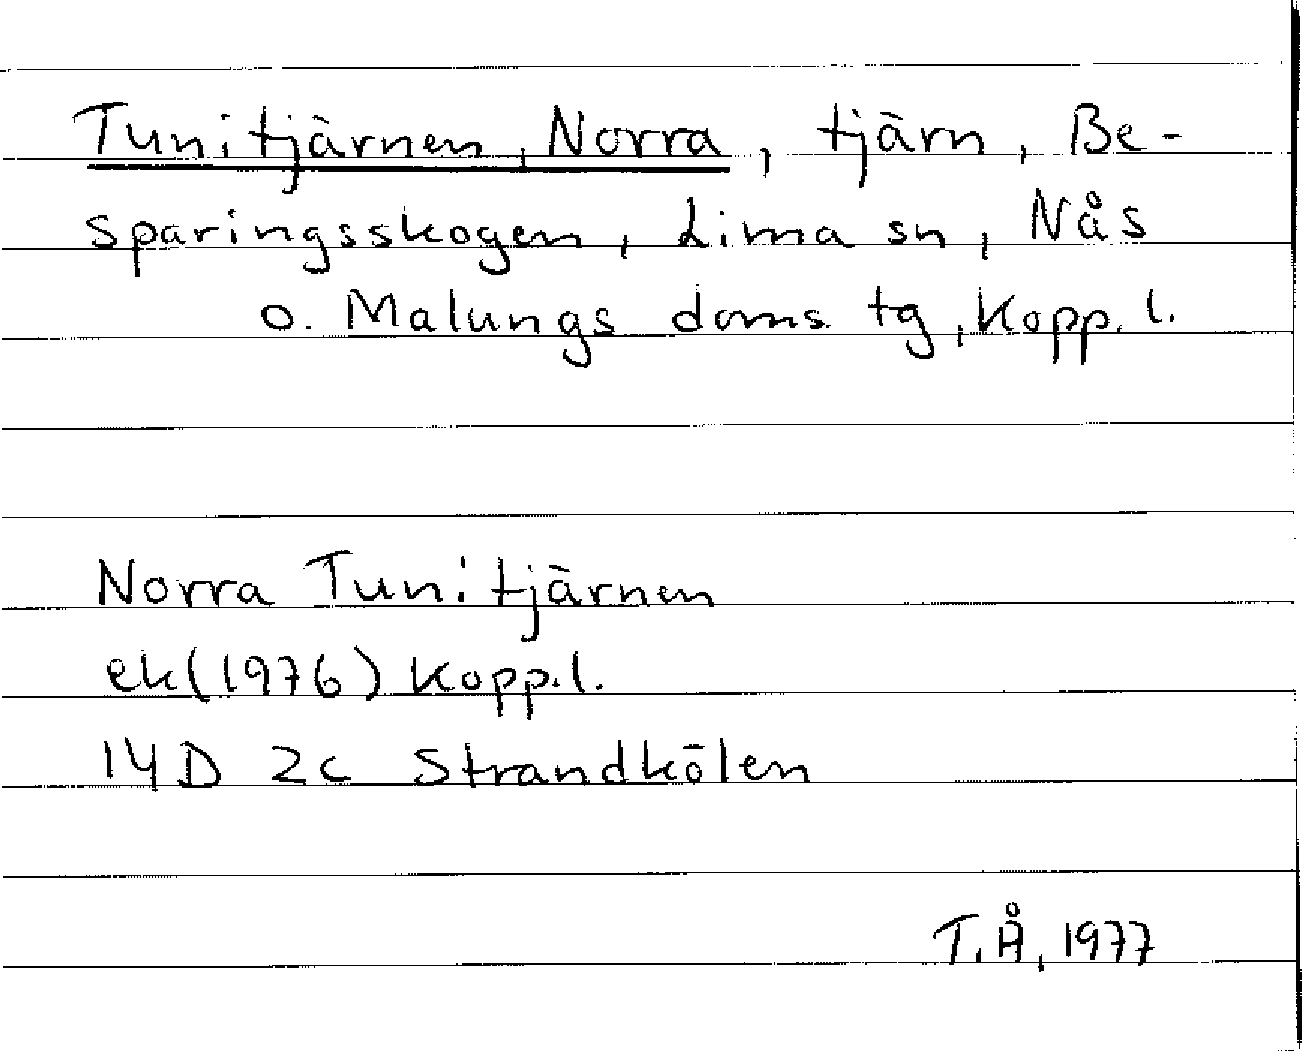 Tunitjärnen, Norra, tjärn, Be-
sparingsskogen, Lima sn, Nås
o. Malungs doms. tg, Kopp. l.
Norra Tunitjärnen
ek(1976) Kopp.l.
14D 2c Strandkölen
T.Å, 1977